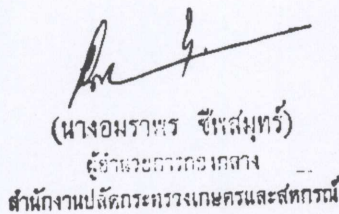 (นางอมราพร ชีพสมุทร์)
ผู้อำนวยการกองกลาง
สำนักงานปลัดกระทรวงเกษตรและสหกรณ์